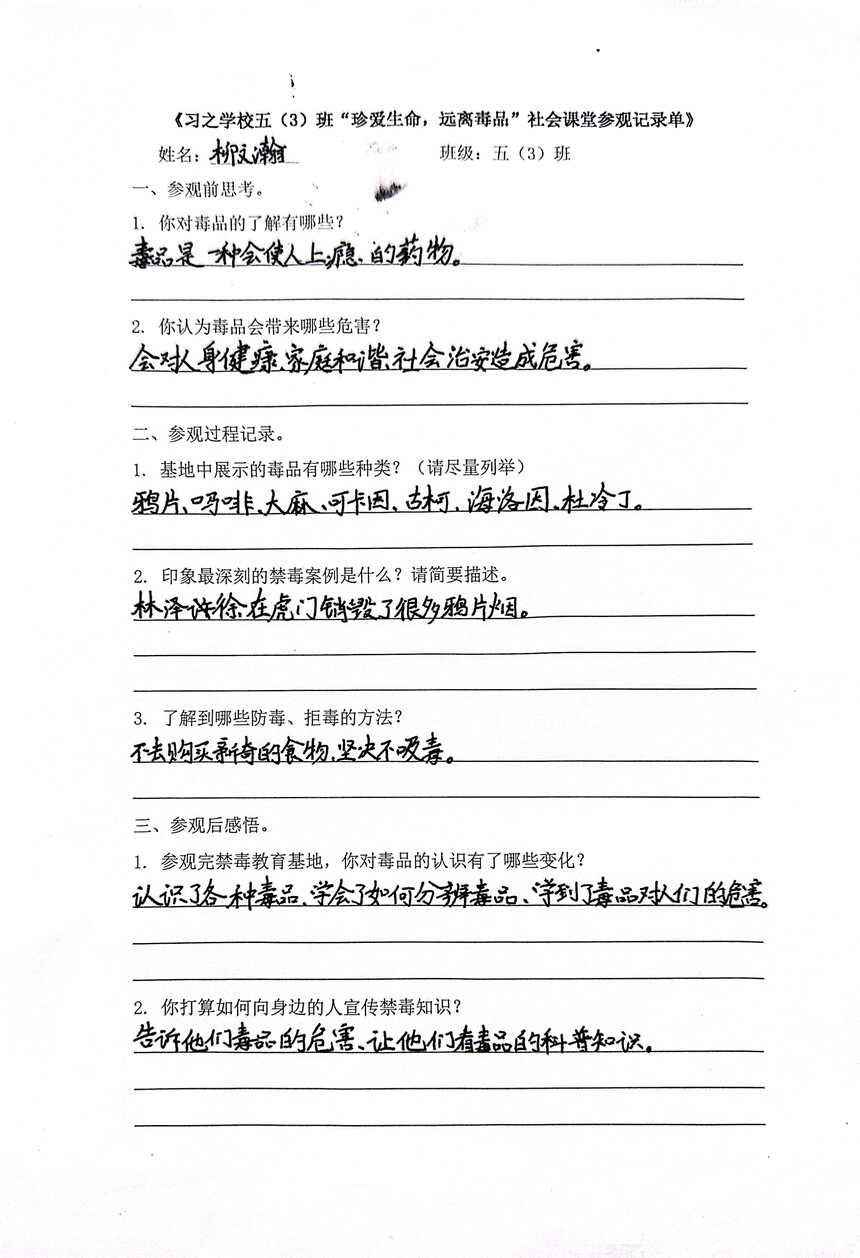 《习之学校五（3）班“珍爱生命，远离毒品”社会课堂参观记录单》
姓名：柳文瀚 班级：五（3）班
一、参观前思考。
1. 你对毒品的了解有哪些？
毒品是一种会使人上瘾的药物。
2. 你认为毒品会带来哪些危害？
会对人身健康、家庭和谐、社会治安造成危害。
二、参观过程记录。
1. 基地中展示的毒品有哪些种类？（请尽量列举）
鸦片、吗啡、大麻、可卡因、古柯、海洛因、杜冷丁。
2. 印象最深刻的禁毒案例是什么？请简要描述。
林泽徐在虎门销毁了很多鸦片烟。
3. 了解到哪些防毒、拒毒的方法？
不去购买新奇的食物，坚决不吸毒。
三、参观后感悟。
1. 参观完禁毒教育基地，你对毒品的认识有了哪些变化？
认识了各种毒品、学会了如何分辨毒品、学到了毒品对人们的危害。
2. 你打算如何向身边的人宣传禁毒知识？
告诉他们毒品的危害、让他们看毒品的科普知识。